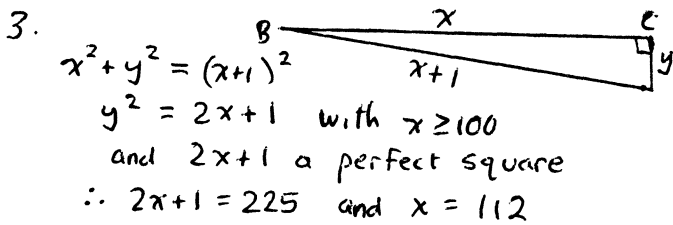 3.
B x C
x² + y² = (x+1)² x+1 y
y² = 2x+1 with x ≥ 100
and 2x+1 a perfect square
∴ 2x+1 = 225 and x = 112